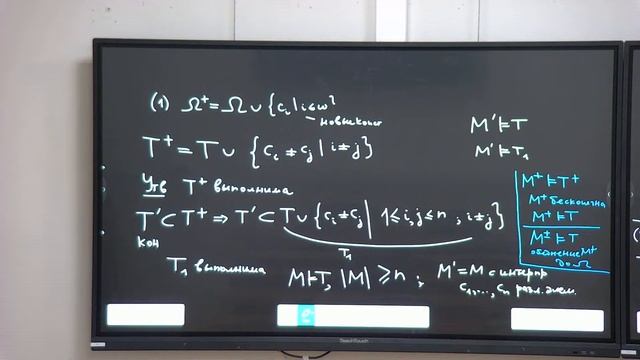 (1) Ω⁺ = Ω ∪ {cᵢ | i ≤ ω}
— новые конст
T⁺ = T ∪ {cᵢ ≠ cⱼ | i ≠ j}
Утв T⁺ выполнима
T' ⊂ T⁺ ⇒ T' ⊂ T ∪ {cᵢ ≠ cⱼ | 1 ≤ i, j ≤ n, i ≠ j}
кон
T₁
T₁ выполнима M ⊨ T, |M| ≥ n; M' = M с интерпр
c₁, ..., cₙ разл. элем.
M' ⊨ T
M' ⊨ T₁
M⁺ ⊨ T⁺
M⁺ бесконечна
M⁺ ⊨ T
M± ⊨ T
обеднение M⁺
до Ω
TeachTouch